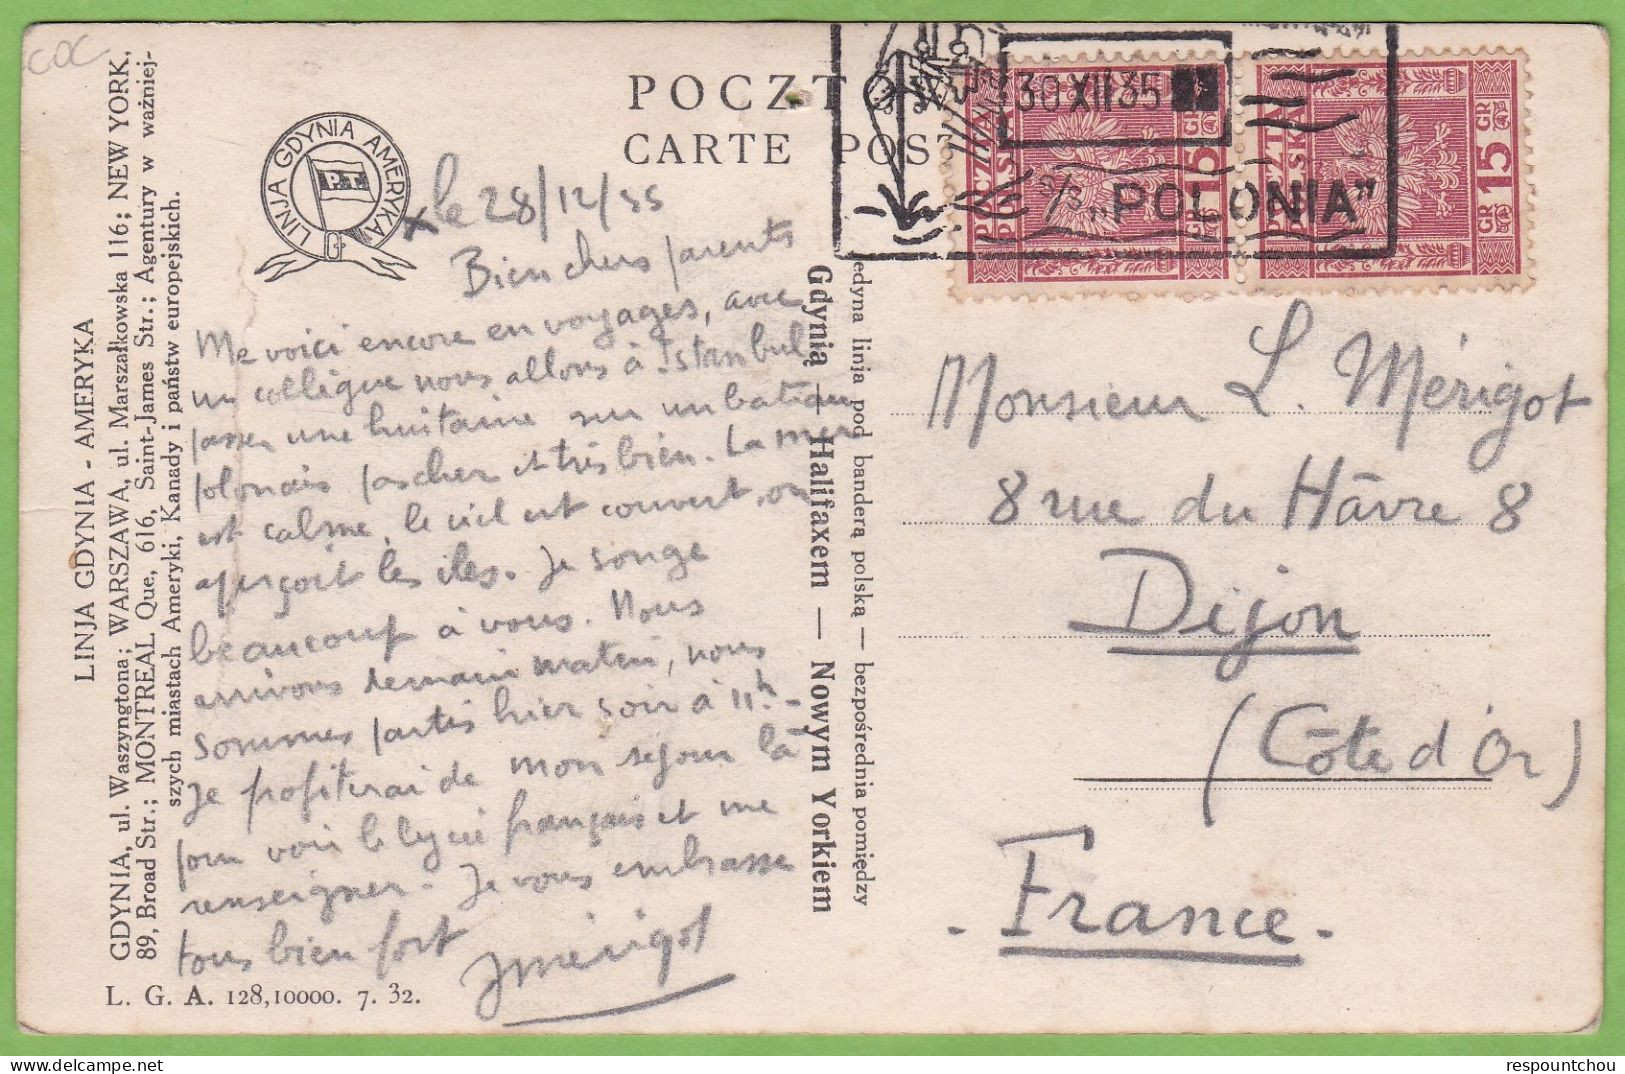 COC
LINJA GDYNIA - AMERYKA
GDYNIA, ul. Waszyngtona; WARSZAWA, ul. Marszałkowska 116; NEW YORK,
89, Broad Str.; MONTREAL Que, 616, Saint-James Str.; Agentury w ważniej-
szych miastach Ameryki, Kanady i państw europejskich.
LINJA GDYNIA AMERYKA
P.T.
G
L. G. A. 128,10000. 7. 32.
POCZTO
CARTE POST
le 28/12/35
Bien chers parents
Me voici encore en voyages, avec
un collègue nous allons à Istanbul
passer une huitaine sur un bateau
polonais pas cher et très bien. La mer
est calme, le ciel est couvert, on
aperçoit les îles. Je songe
beaucoup à vous. Nous
arrivons demain matin, nous
sommes partis hier soir à 11h -
Je profiterai de mon séjour là
pour voir le lycée français et me
renseigner. Je vous embrasse
tous bien fort
JMérigot
jedyna linja pod banderą polską — bezpośrednia pomiędzy
Gdynią — Halifaxem — Nowym Yorkiem
30 XII 35
S/S „POLONIA"
POCZTA POLSKA
GR 15
POCZTA POLSKA
GR 15 GR
Monsieur L. Mérigot
8 rue du Hâvre 8
Dijon
(Côte d'Or)
- France -
respountchou